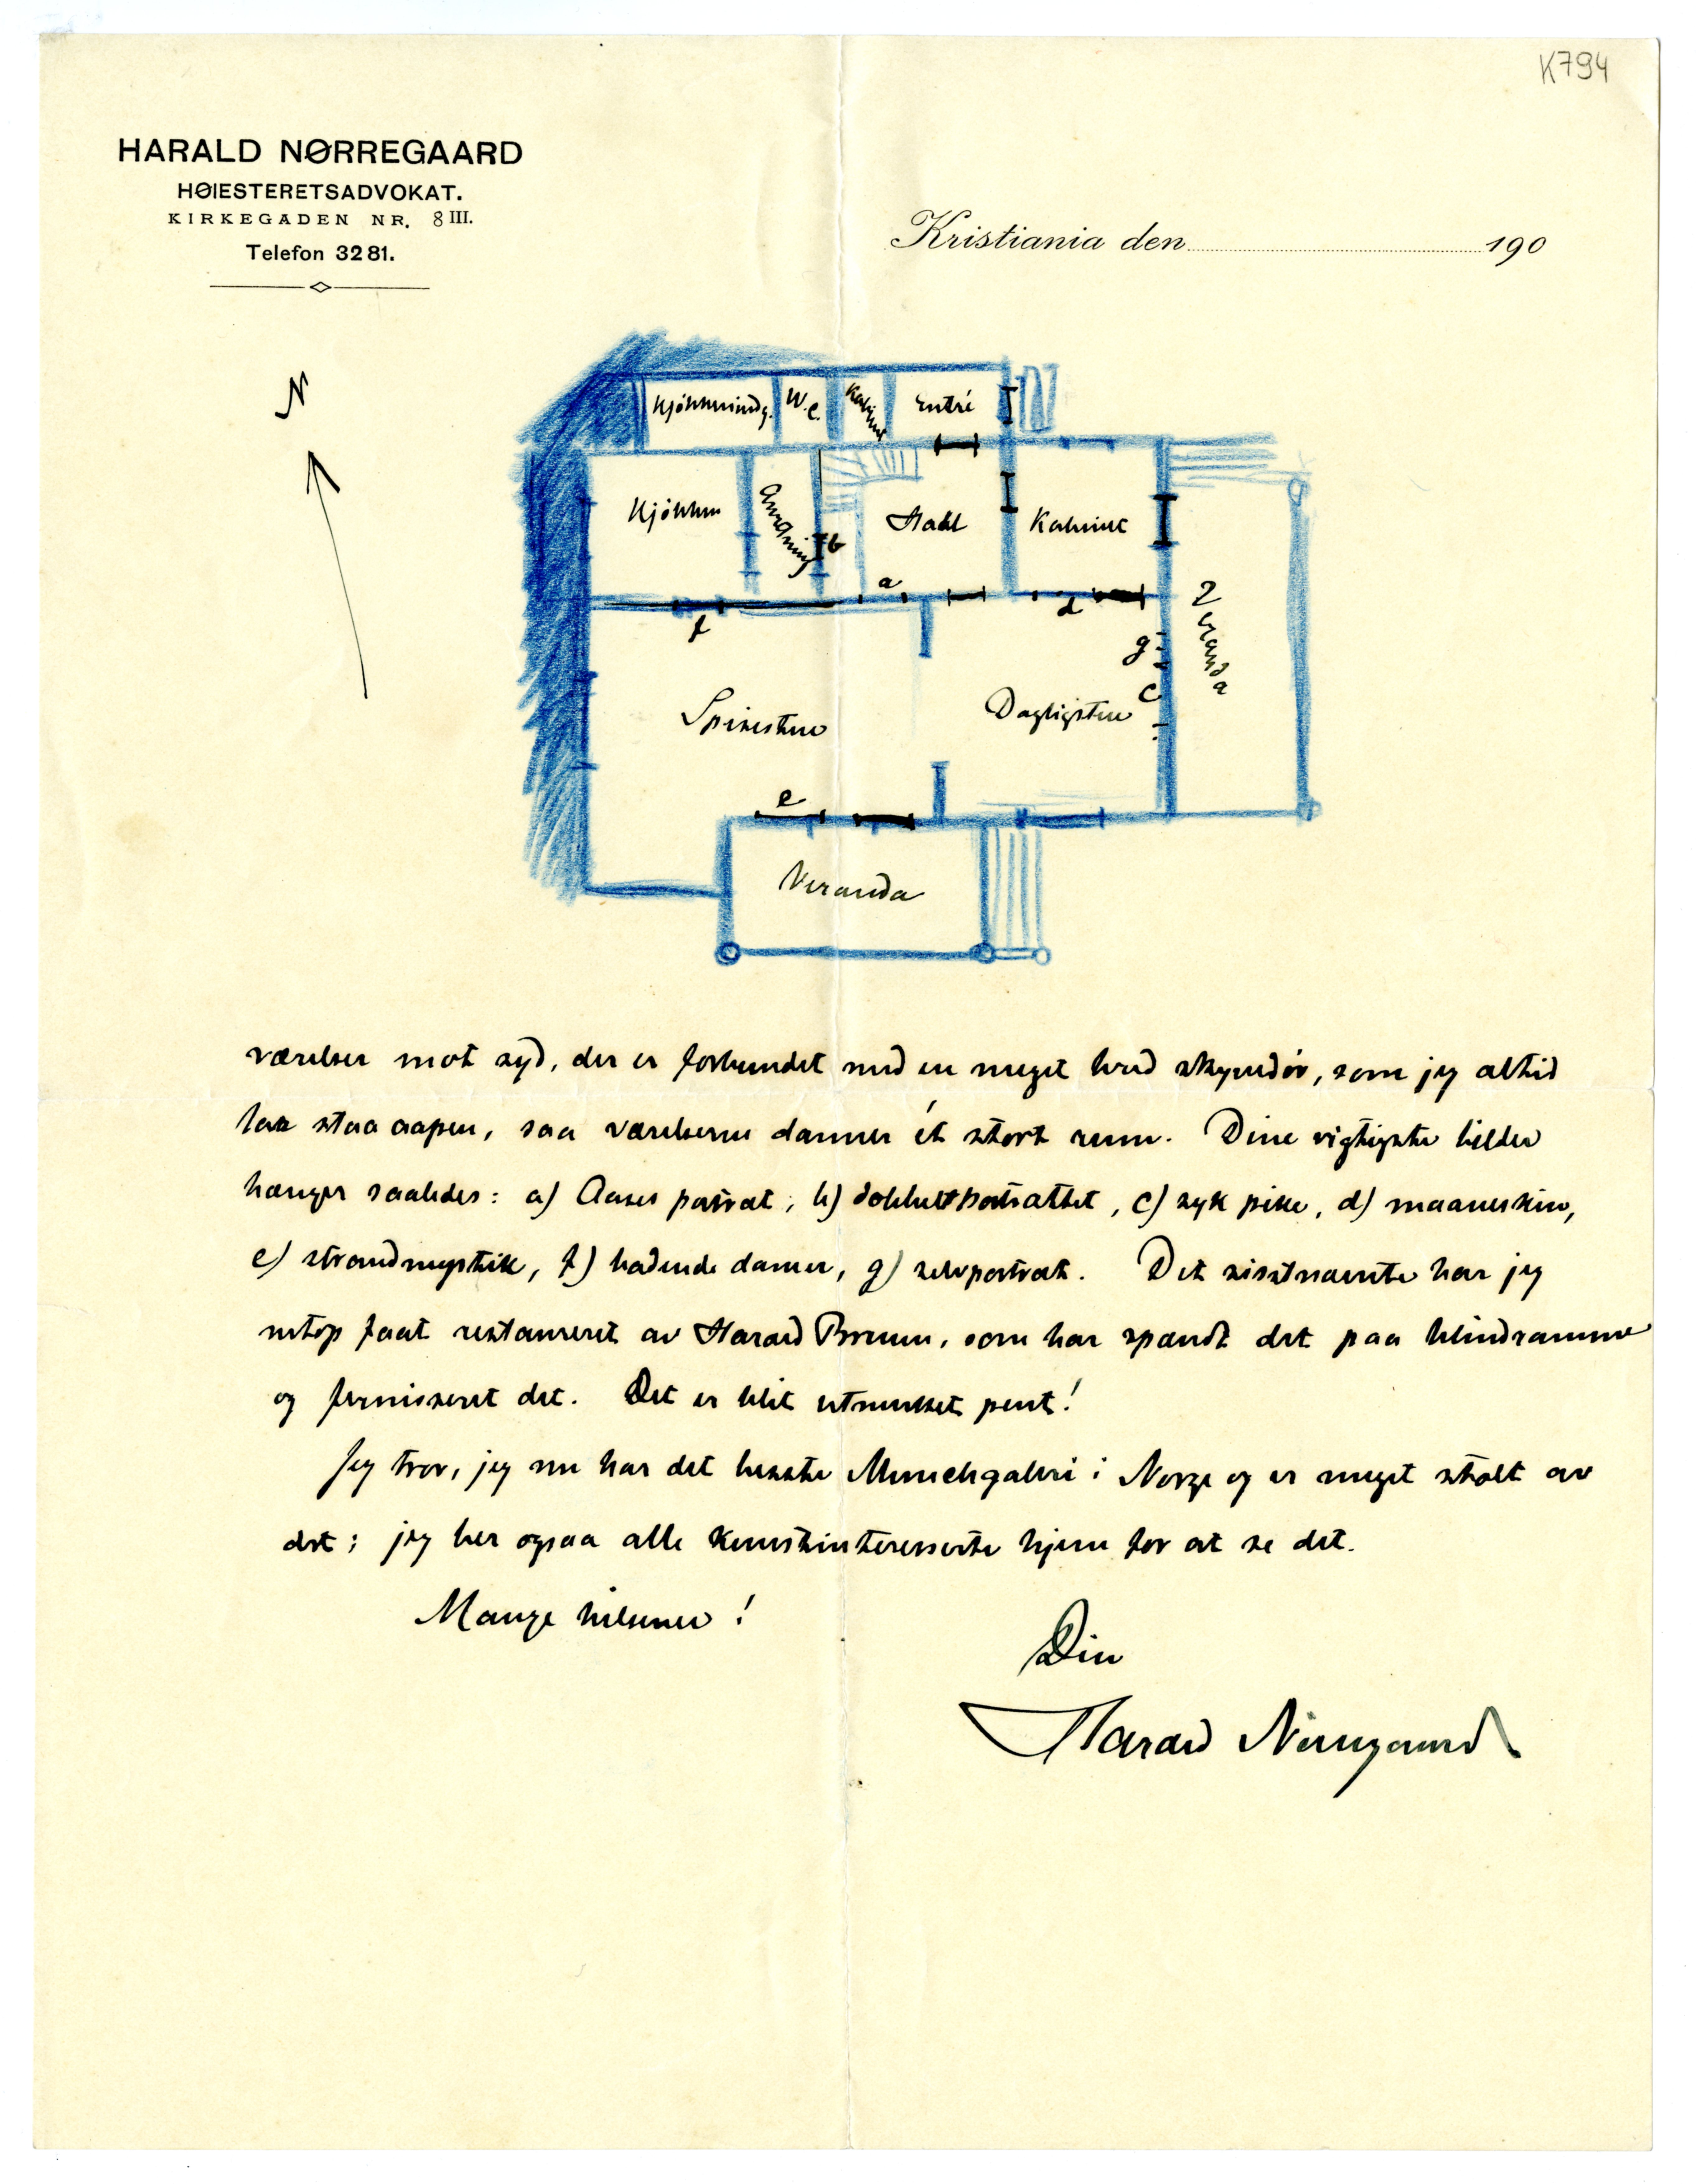 K794
HARALD NØRREGAARD
HØIESTERETSADVOKAT.
KIRKEGADEN NR. 8 III.
Telefon 3281.
Kristiania den 190
N
Kjøkkenindg. W.C. Entré
Kjøkken Anretning b Hall Kabinet
a d
f g
c
Spisestue Dagligstue Veranda
e
Veranda
værelser mot syd, der er forbundet med en meget bred skyvedør, som jeg altid
lar staa aapen, saa værelserne danner ét stort rum. Dine vigtigste bilder
hænger saaledes: a) Aases portræt, b) dobbeltportrættet, c) syk pike, d) maaneskin,
e) strandmystik, f) badende damer, g) selvportræt. Det sistnævnte har jeg
netop faat restaureret av Harald Brun, som har spændt det paa blindramme
og fernisseret det. Det er blit utmerket pent!
Jeg tror, jeg nu har det beste Munchgalleri i Norge og er meget stolt av
det; jeg ber ogsaa alle kunstinteresserte hjem for at se det.
Mange hilsener!
Din
Harald Nørregaard